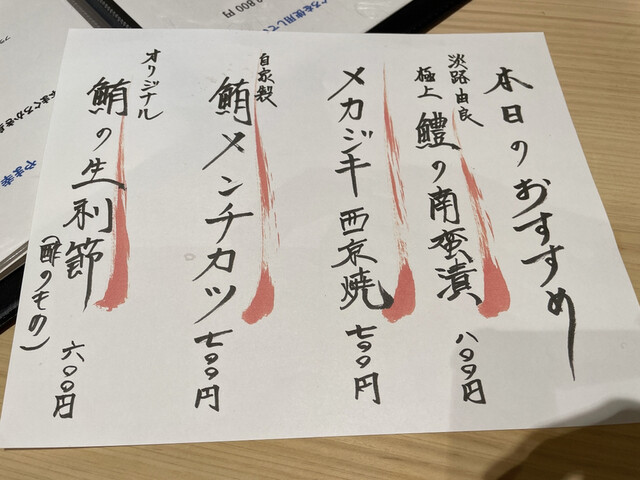 本日のおすすめ
淡路由良
極上 鱧の南蛮漬
八〇〇円
メカジキ西京焼
七〇〇円
自家製
鮪メンチカツ
七〇〇円
オリジナル
鮪の生利節
(酢のもの)
六〇〇円